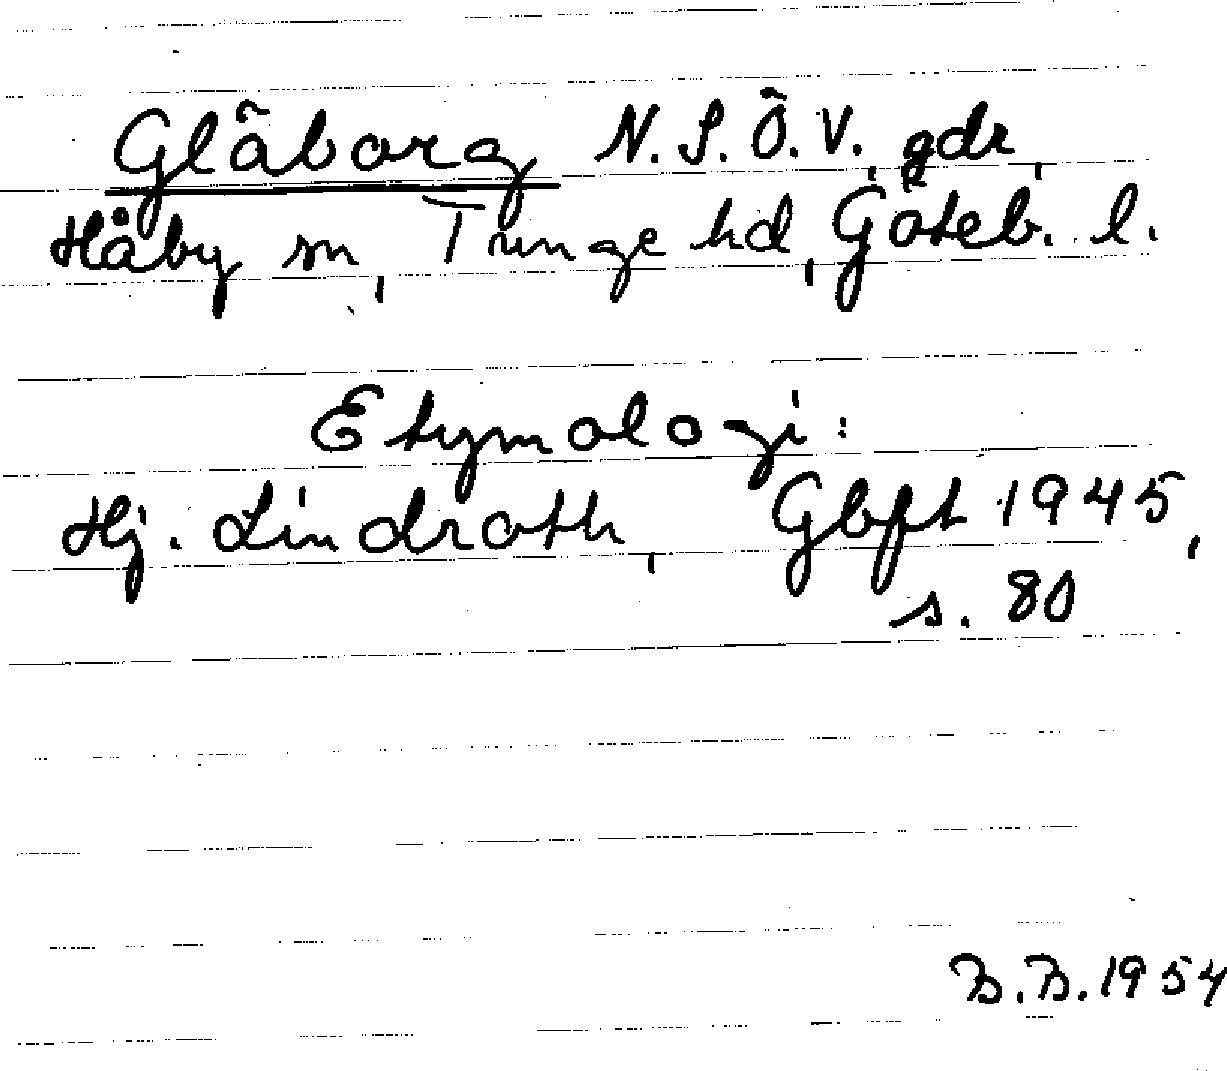 Glãborg N. S. Ö. V., gdr,
Håby sn, Tunge hd, Göteb. l.
Etymologi:
Hj. Lindroth, Gbpt 1945,
s. 80
B.B. 1954